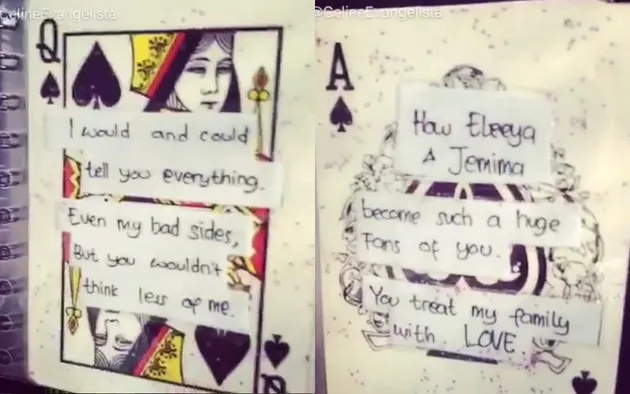 @CelineEvangelista
Q
I would and could
tell you everything.
Even my bad sides,
But you wouldn't
think less of me.
Q
@CelineEvangelista
A
How Eleeya
& Jemima
become such a huge
Fans of you.
You treat my family
with LOVE